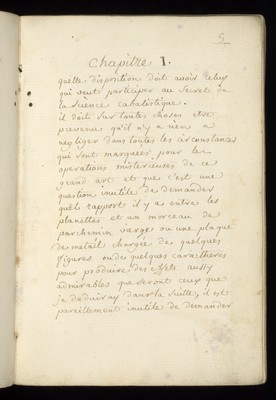 5
Chapitre I.
quelle disposition doit avoir celuy
qui veut participer au Secret de
la Science cabalistique.
il doit sur toutes choses etre
prevenu qu'il n'y a rien a
negliger dans toutes les circonstances
qui sont marquées pour les
operations misterieuses de ce
grand art et que c'est une
question inutile de demander
quel rapport il y a entre les
planettes et un morceau de
parchemin vierge ou une plaque
de metail chargée de quelques
figures ou de quelques caractheres
pour produire des effets aussy
admirables que seront ceux que
je deduiray dans la suitte, il est
pareillement inutile de demander